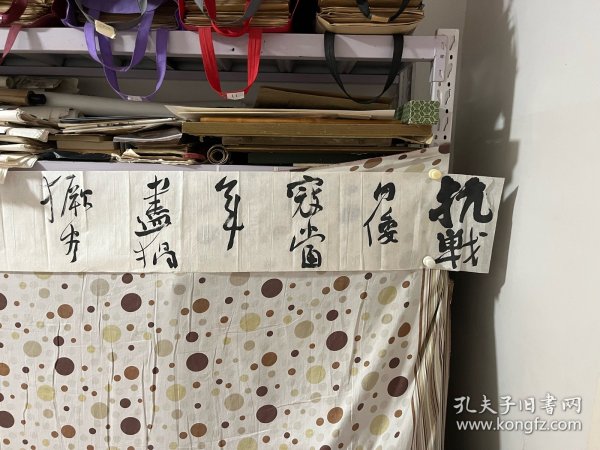 抗戰
日倭
寇當
年
盡猖
獗方
孔夫子旧書网
www.kongfz.com